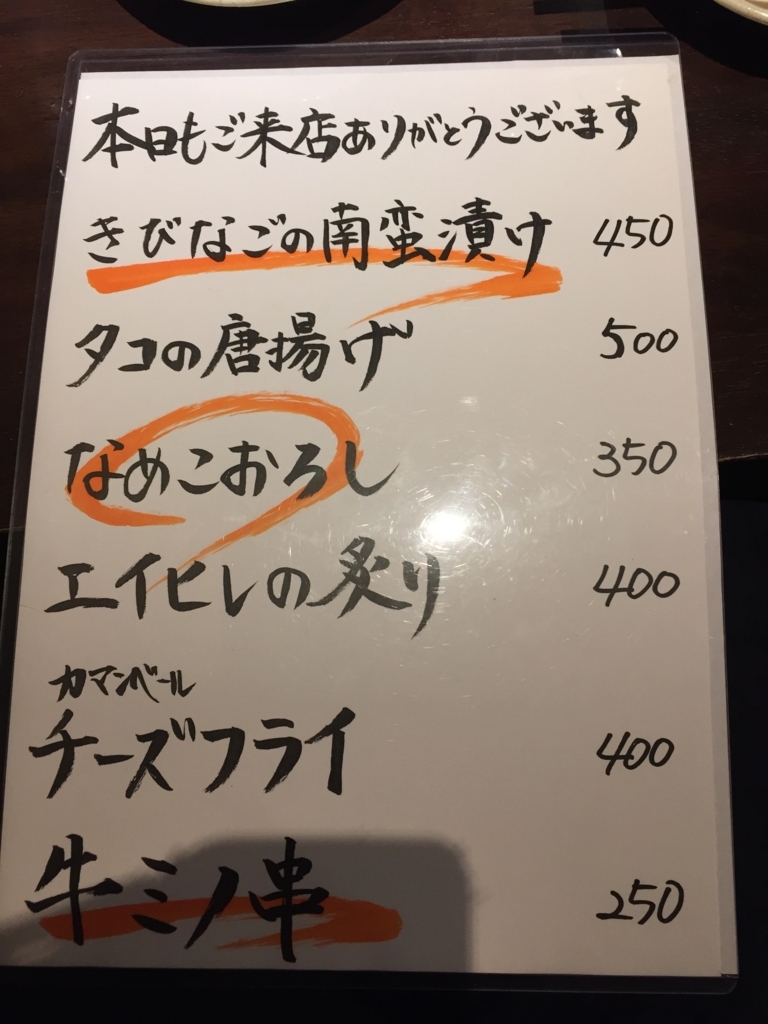 本日もご来店ありがとうございます
きびなごの南蛮漬け 450
タコの唐揚げ 500
なめこおろし 350
エイヒレの炙り 400
カマンベール
チーズフライ 400
牛ミノ串 250